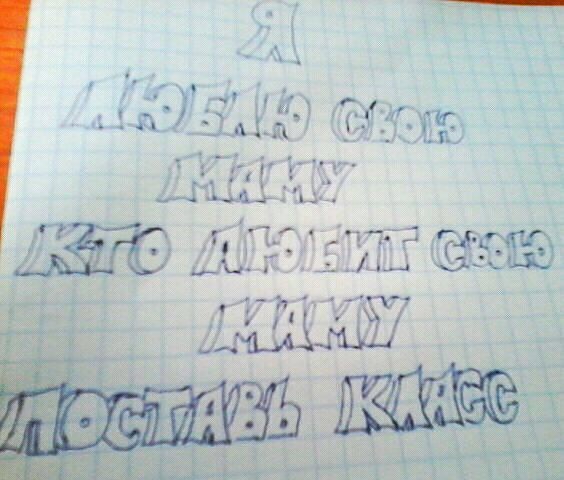 Я
ЛЮБЛЮ СВОЮ
МАМУ
КТО ЛЮБИТ СВОЮ
МАМУ
ПОСТАВЬ КЛАСС